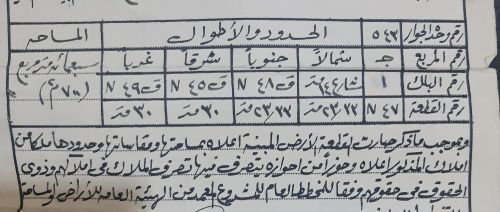 رقم وحد الجوار ٥٤٣ الحدود والأطوال المساحه
رقم المربع جـ شمالاً جنوبياً شرقاً غرباً سبعمائه متر مربع
رقم البلك ١ شارع ١٤ متر ق ٤٨ N ق ٤٥ N ق ٤٩ N (٧٠٠ م٢)
رقم القطعة ٤٧ N ٢٣٫٣٣ متر ٢٣٫٣٣ متر ٣٠ متر ٣٠ متر
وبموجب ماذكر صارت القطعة الأرض المبينة اعلاه بمساحتها ومقاساتها وحدودها ملكا من
املاك المذكور اعلاه وحرزاً من احوازه يتصرف فيها تصرف الملاك في املاكهم وذوي
الحقوق في حقوقهم وفقا للمخطط العام للمشروع المعمد من الهيئة العامه للأراضي والمساحة